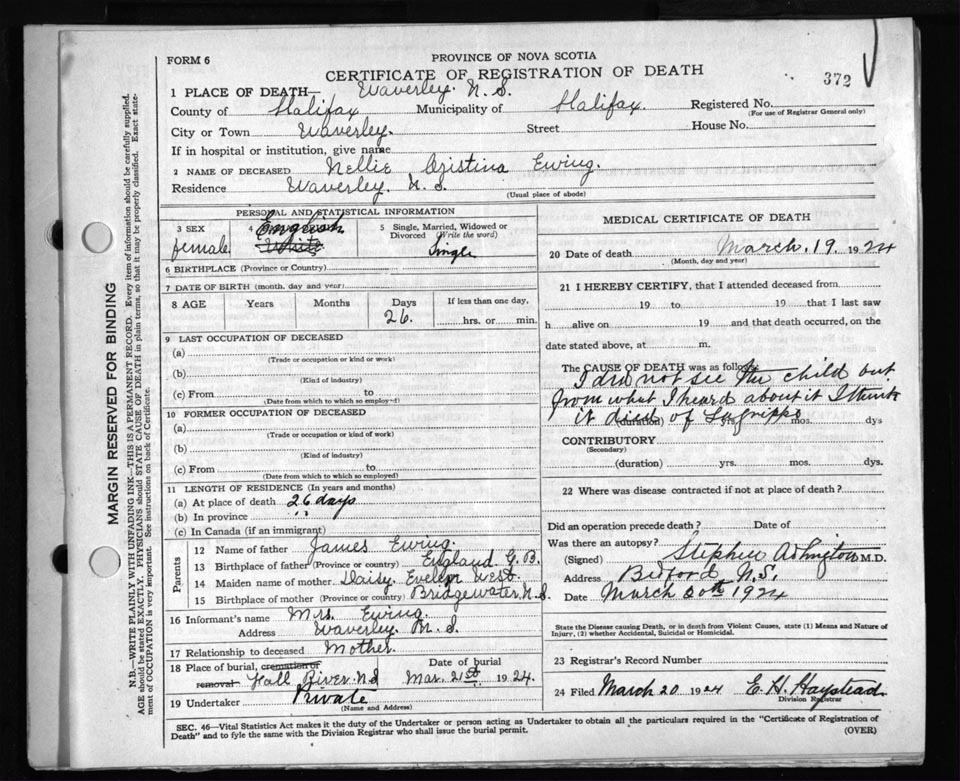 FORM 6
PROVINCE OF NOVA SCOTIA
CERTIFICATE OF REGISTRATION OF DEATH
372
1 PLACE OF DEATH— Waverley. N. S.
County of Halifax Municipality of Halifax. Registered No.
(For use of Registrar General only)
City or Town Waverley. Street House No.
If in hospital or institution, give name
2 NAME OF DECEASED Nellie Cristina Ewing.
Residence Waverley. N. S.
(Usual place of abode)
PERSONAL AND STATISTICAL INFORMATION
3 SEX 4 English 5 Single, Married, Widowed or
Divorced (Write the word)
female. White Single
6 BIRTHPLACE (Province or Country)
7 DATE OF BIRTH (month, day and year)
8 AGE Years Months Days If less than one day,
26. hrs. or min.
9 LAST OCCUPATION OF DECEASED
(a)
(Trade or occupation or kind or work)
(b)
(Kind of industry)
(c) From to
(Date from which to which so employed)
10 FORMER OCCUPATION OF DECEASED
(a)
(Trade or occupation or kind of work)
(b)
(Kind of industry)
(c) From to
(Date from which to which so employed)
11 LENGTH OF RESIDENCE (In years and months)
(a) At place of death 26 days
(b) In province " "
(c) In Canada (if an immigrant)
Parents
12 Name of father James Ewing.
13 Birthplace of father (Province or country) England G. B.
14 Maiden name of mother Daisy Evelyn West.
15 Birthplace of mother (Province or country) Bridgewater, N. S.
16 Informant's name Mrs. Ewing.
Address Waverley N. S.
17 Relationship to deceased Mother.
18 Place of burial, cremation or Date of burial
removal Fall River. N S Mar. 21st 1924.
19 Undertaker Private
(Name and Address)
MEDICAL CERTIFICATE OF DEATH
20 Date of death March. 19. 1924
(Month, day and year)
21 I HEREBY CERTIFY, that I attended deceased from
19 to 19 that I last saw
h alive on 19 and that death occurred, on the
date stated above, at m.
The CAUSE OF DEATH was as follows
I did not see the child but
from what I heard about it I think
it died of Lagrippe
(duration) yrs. mos. dys
CONTRIBUTORY
(Secondary)
(duration) yrs. mos. dys.
22 Where was disease contracted if not at place of death?
Did an operation precede death? Date of
Was there an autopsy?
(Signed) Stephen M.D.
Address Bedford N.S.
Date March 20th 1924
State the Disease causing Death, or in death from Violent Causes, state (1) Means and Nature of
Injury, (2) whether Accidental, Suicidal or Homicidal.
23 Registrar's Record Number
24 Filed March 20 1924 E. H. Haystead.
Division Registrar
SEC. 46—Vital Statistics Act makes it the duty of the Undertaker or person acting as Undertaker to obtain all the particulars required in the "Certificate of Registration of
Death" and to fyle the same with the Division Registrar who shall issue the burial permit. (OVER)
MARGIN RESERVED FOR BINDING
N.B.—WRITE PLAINLY WITH UNFADING INK—THIS IS A PERMANENT RECORD. Every item of information should be carefully supplied.
AGE should be stated EXACTLY. PHYSICIANS should STATE CAUSE OF DEATH in plain terms, so that it may be properly classified. Exact state-
ment of OCCUPATION is very important. See instructions on back of Certificate.